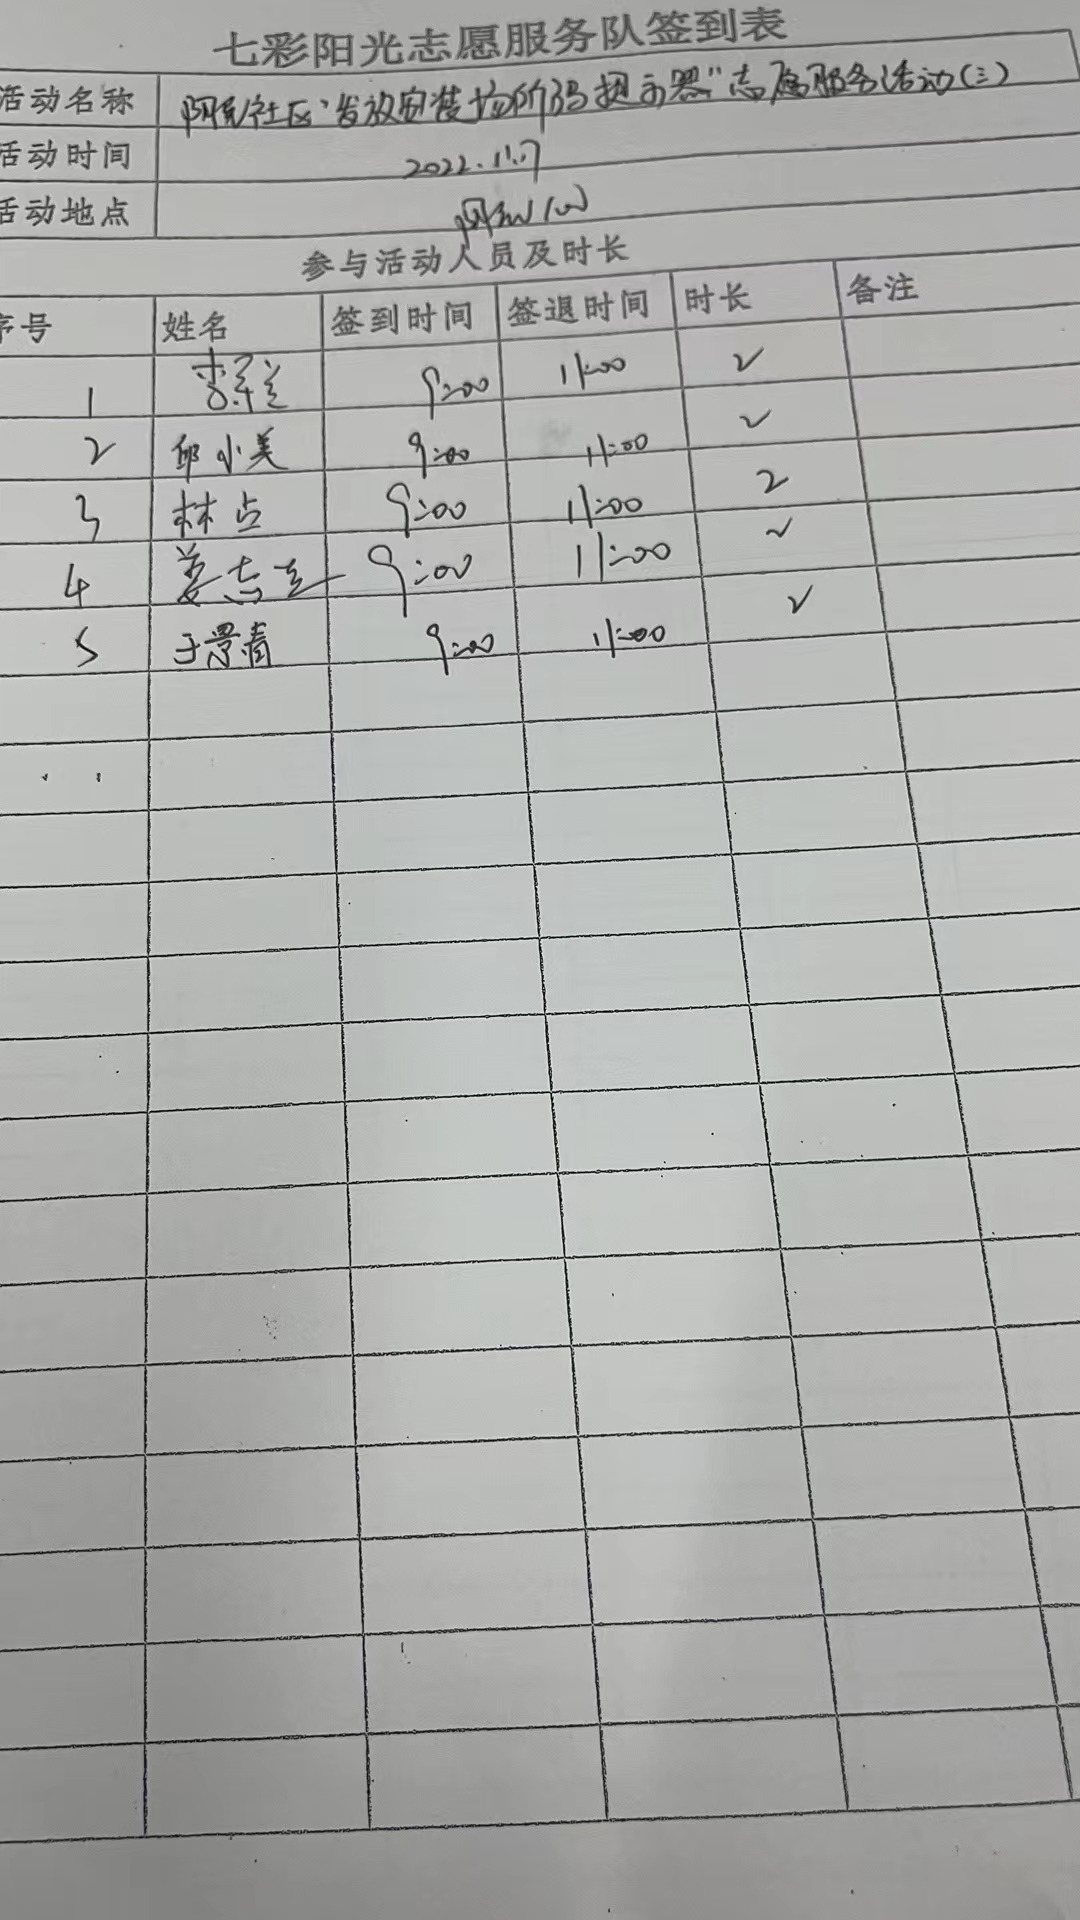 七彩阳光志愿服务队签到表
活动名称 社区"发放安装 码提示器"志愿服务活动(三)
活动时间 2022.11.17
活动地点
参与活动人员及时长
序号 姓名 签到时间 签退时间 时长 备注
1 9:00 11:00 2
2 邱小美 9:00 11:00 2
3 林占 9:00 11:00 2
4 姜志 9:00 11:00 2
5 于景清 9:00 11:00 2